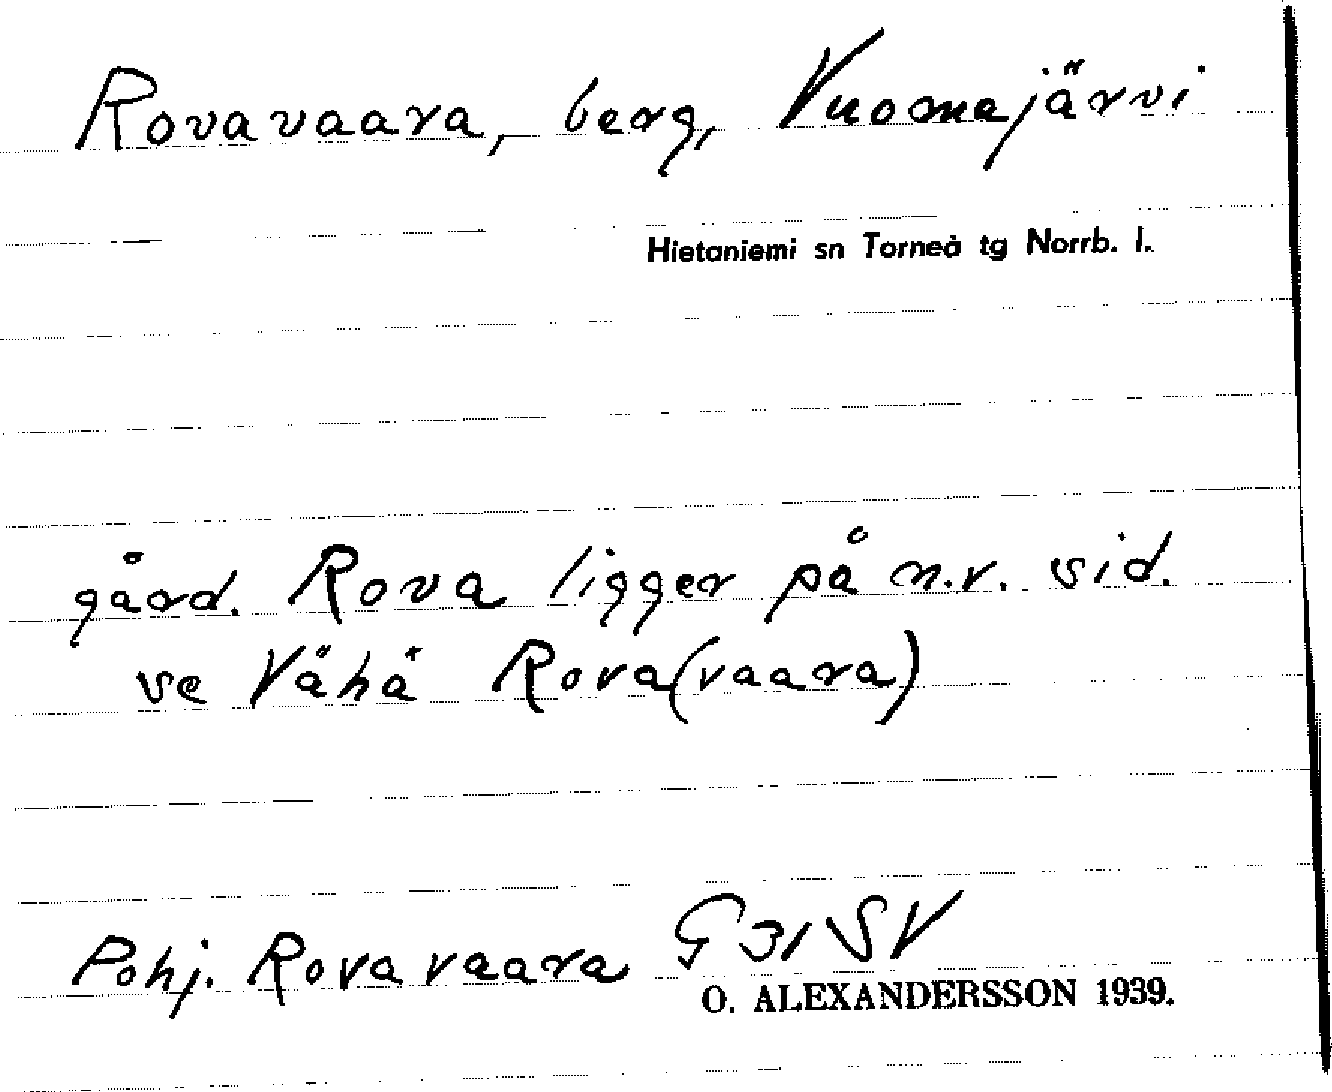 Rovavaara, berg, Vuomajärvi
Hietaniemi sn Torneå tg Norrb. l.
gård. Rova ligger på n.v. sid.
se Vähä Rova(vaara)
Pohj. Rovavaara G 31 SV
O. ALEXANDERSSON 1939.